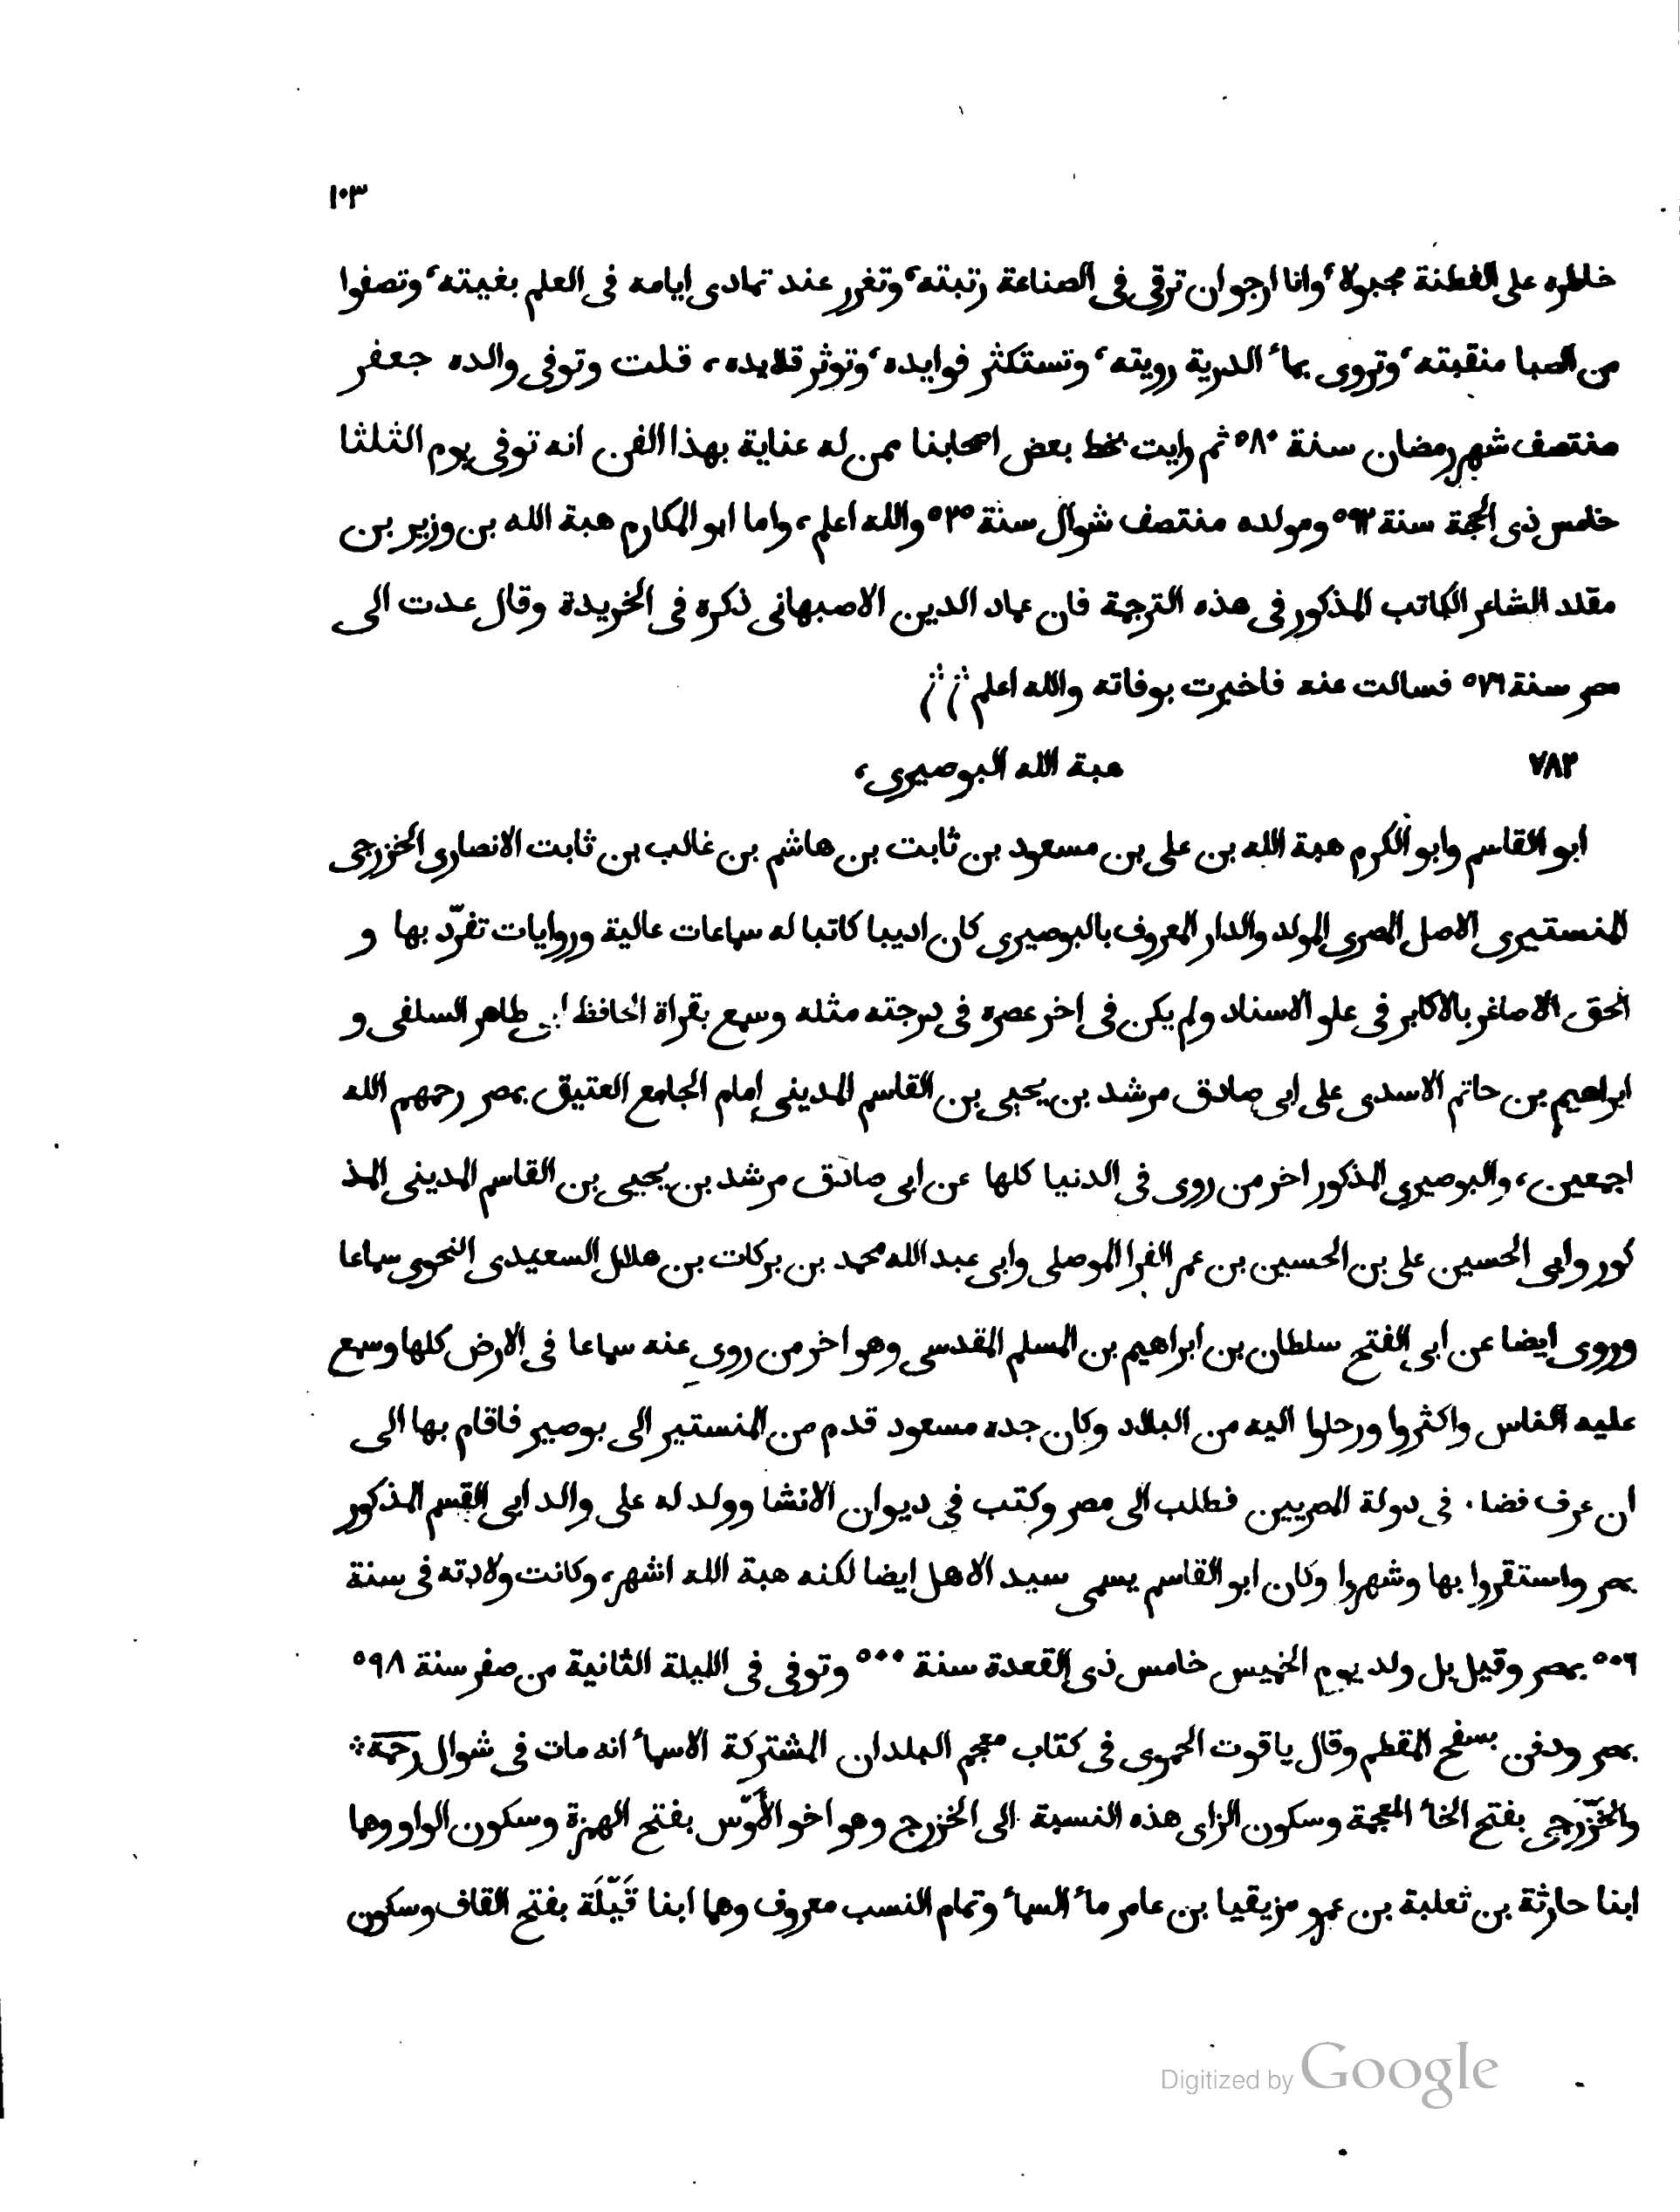 ١٠٣
خاطره على الفطنة مجبولا، وانا ارجو ان ترقى فى الصناعة رتبته، وتغزر عند تمادى ايامه فى العلم بغيته، وتصفوا
من الصبا منقبته، وتروى بمأ الدرية رويته، وتستكثر فوايده، وتوثر قلايده، قلت وتوفى والده جعفر
منتصف شهر رمضان سنة ٥٨٠ ثم رايت بخط بعض اصحابنا ممن له عناية بهذا الفن انه توفى يوم الثلثا
خامس ذى الحجة سنة ٥٩٢ ومولده منتصف شوال سنة ٥٢٥ والله اعلم، واما ابو المكارم هبة الله بن وزير بن
مقلد الشاعر الكاتب المذكور فى هذه الترجمة فان عماد الدين الاصبهانى ذكره فى الخريدة وقال عدت الى
مصر سنة ٥٧٦ فسالت عنه فاخبرت بوفاته والله اعلم
٧٨٢ هبة الله البوصيرى،
ابو القاسم وابو الكرم هبة الله بن على بن مسعود بن ثابت بن هاشم بن غالب بن ثابت الانصارى الخزرجى
المنستيرى الاصل المصرى المولد والدار المعروف بالبوصيرى كان اديبا كاتبا له سماعات عالية وروايات تفرّد بها و
الحق الاصاغر بالاكابر فى علو الاسناد ولم يكن فى اخر عصره فى درجته مثله وسمع بقراة الحافظ ابى طاهر السلفى و
ابراهيم بن حاتم الاسدى على ابى صادق مرشد بن يحيى بن القاسم المدينى امام الجامع العتيق بمصر رحمهم الله
اجمعين، والبوصيرى المذكور اخر من روى فى الدنيا كلها عن ابى صادق مرشد بن يحيى بن القاسم المدينى المذ
كور وابى الحسين على بن الحسين بن عمر الفرا الموصلى وابى عبد الله محمد بن بركات بن هلال السعيدى النحوى سماعا
وروى ايضا عن ابى الفتح سلطان بن ابراهيم بن المسلم المقدسى وهو اخر من روى عنه سماعا فى الارض كلها وسمع
عليه الناس واكثروا ورحلوا اليه من البلاد وكان جده مسعود قدم من المنستير الى بوصير فاقام بها الى
ان عرف فضله فى دولة المصريين فطلب الى مصر وكتب فى ديوان الانشا وولد له على والد ابى القسم المذكور
بمصر واستقروا بها وشهروا وكان ابو القاسم يسمى سيد الاهل ايضا لكنه هبة الله اشهر، وكانت ولادته فى سنة
٥٠٦ بمصر وقيل بل ولد يوم الخميس خامس ذى القعدة سنة ٥٠٠ وتوفى فى الليلة الثانية من صفر سنة ٥٩٨
بمصر ودفن بسفح المقطم وقال ياقوت الحموى فى كتاب معجم البلدان المشتركة الاسمأ انه مات فى شوال رحمة
والخَزْرَجى بفتح الخأ المعجمة وسكون الزاى هذه النسبة الى الخزرج وهو اخو الأوْس بفتح الهمزة وسكون الواو وهما
ابنا حارثة بن ثعلبة بن عمرو مزيقيا بن عامر مأ السمأ وتمام النسب معروف وهما ابنا قَيْلَة بفتح القاف وسكون
Digitized by Google